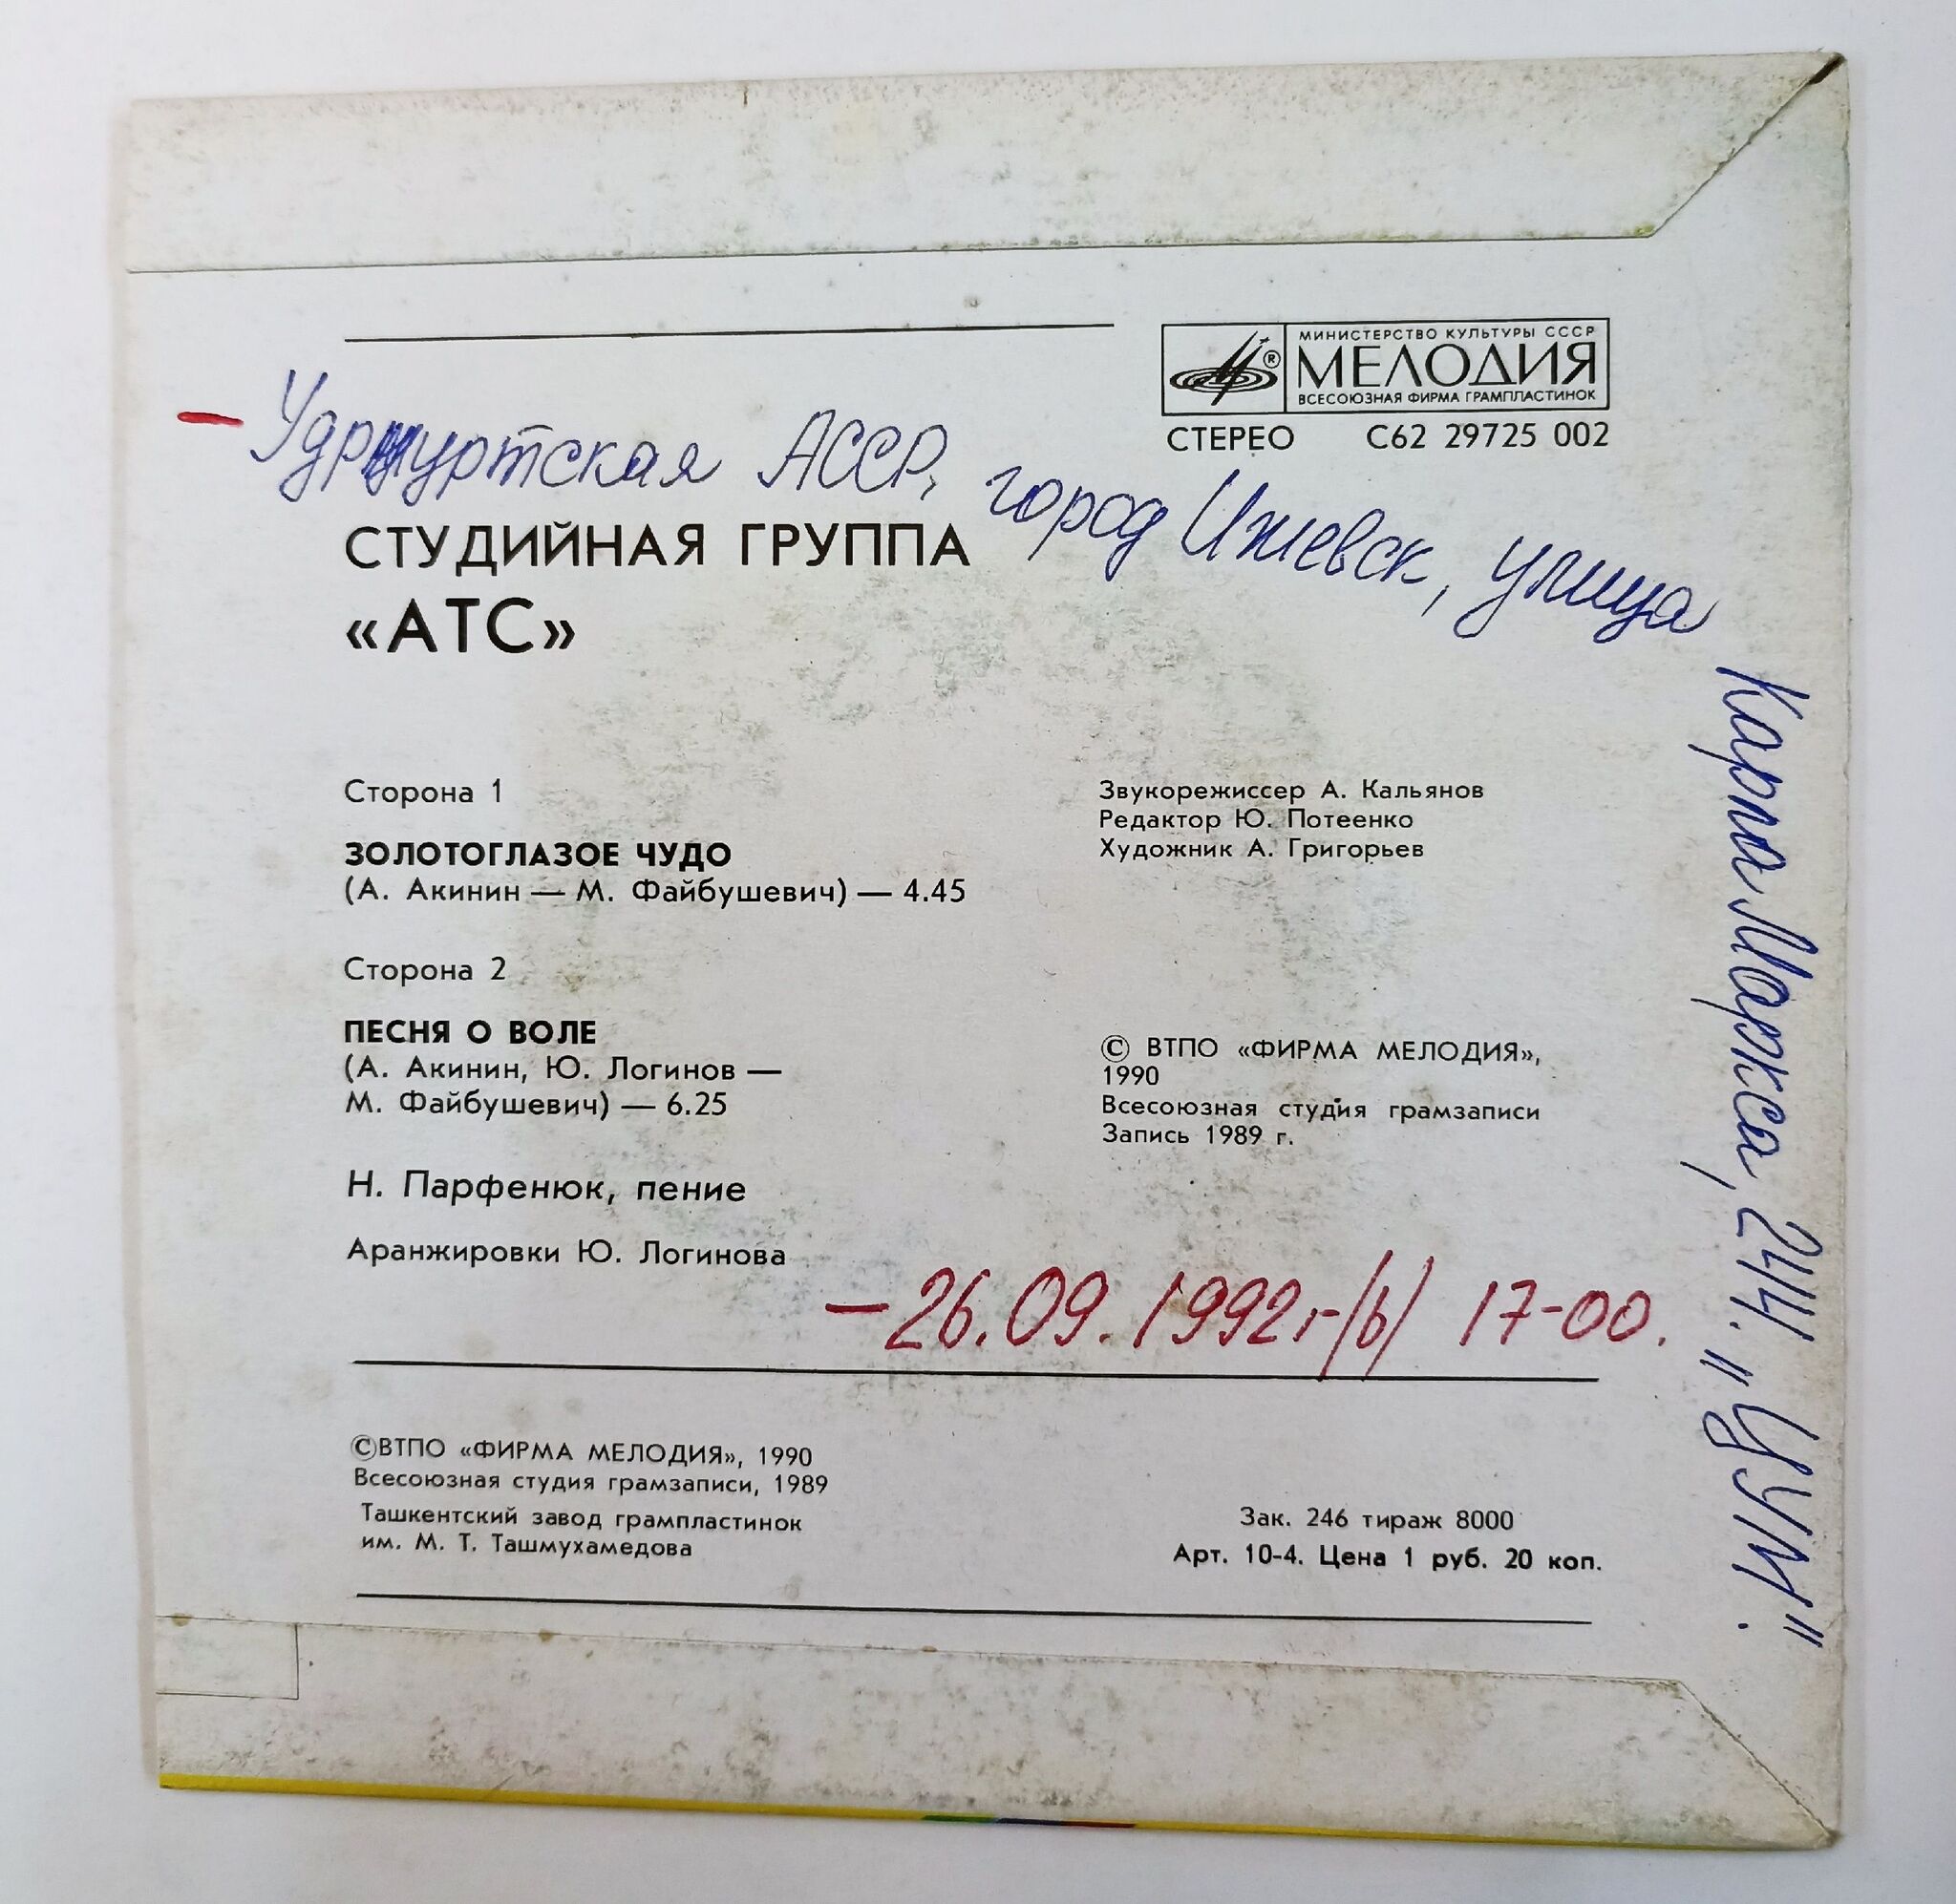 МИНИСТЕРСТВО КУЛЬТУРЫ СССР
МЕЛОДИЯ
ВСЕСОЮЗНАЯ ФИРМА ГРАМПЛАСТИНОК
®
СТЕРЕО С62 29725 002
— Удмуртская АССР, город Ижевск, улица
Карла Маркса, 244. "ЦУМ".
СТУДИЙНАЯ ГРУППА
«АТС»
Сторона 1
ЗОЛОТОГЛАЗОЕ ЧУДО
(А. Акинин — М. Файбушевич) — 4.45
Сторона 2
ПЕСНЯ О ВОЛЕ
(А. Акинин, Ю. Логинов —
М. Файбушевич) — 6.25
Н. Парфенюк, пение
Аранжировки Ю. Логинова
Звукорежиссер А. Кальянов
Редактор Ю. Потеенко
Художник А. Григорьев
© ВТПО «ФИРМА МЕЛОДИЯ»,
1990
Всесоюзная студия грамзаписи
Запись 1989 г.
— 26.09.1992г-/в/ 17-00.
©ВТПО «ФИРМА МЕЛОДИЯ», 1990
Всесоюзная студия грамзаписи, 1989
Ташкентский завод грампластинок
им. М. Т. Ташмухамедова
Зак. 246 тираж 8000
Арт. 10-4. Цена 1 руб. 20 коп.